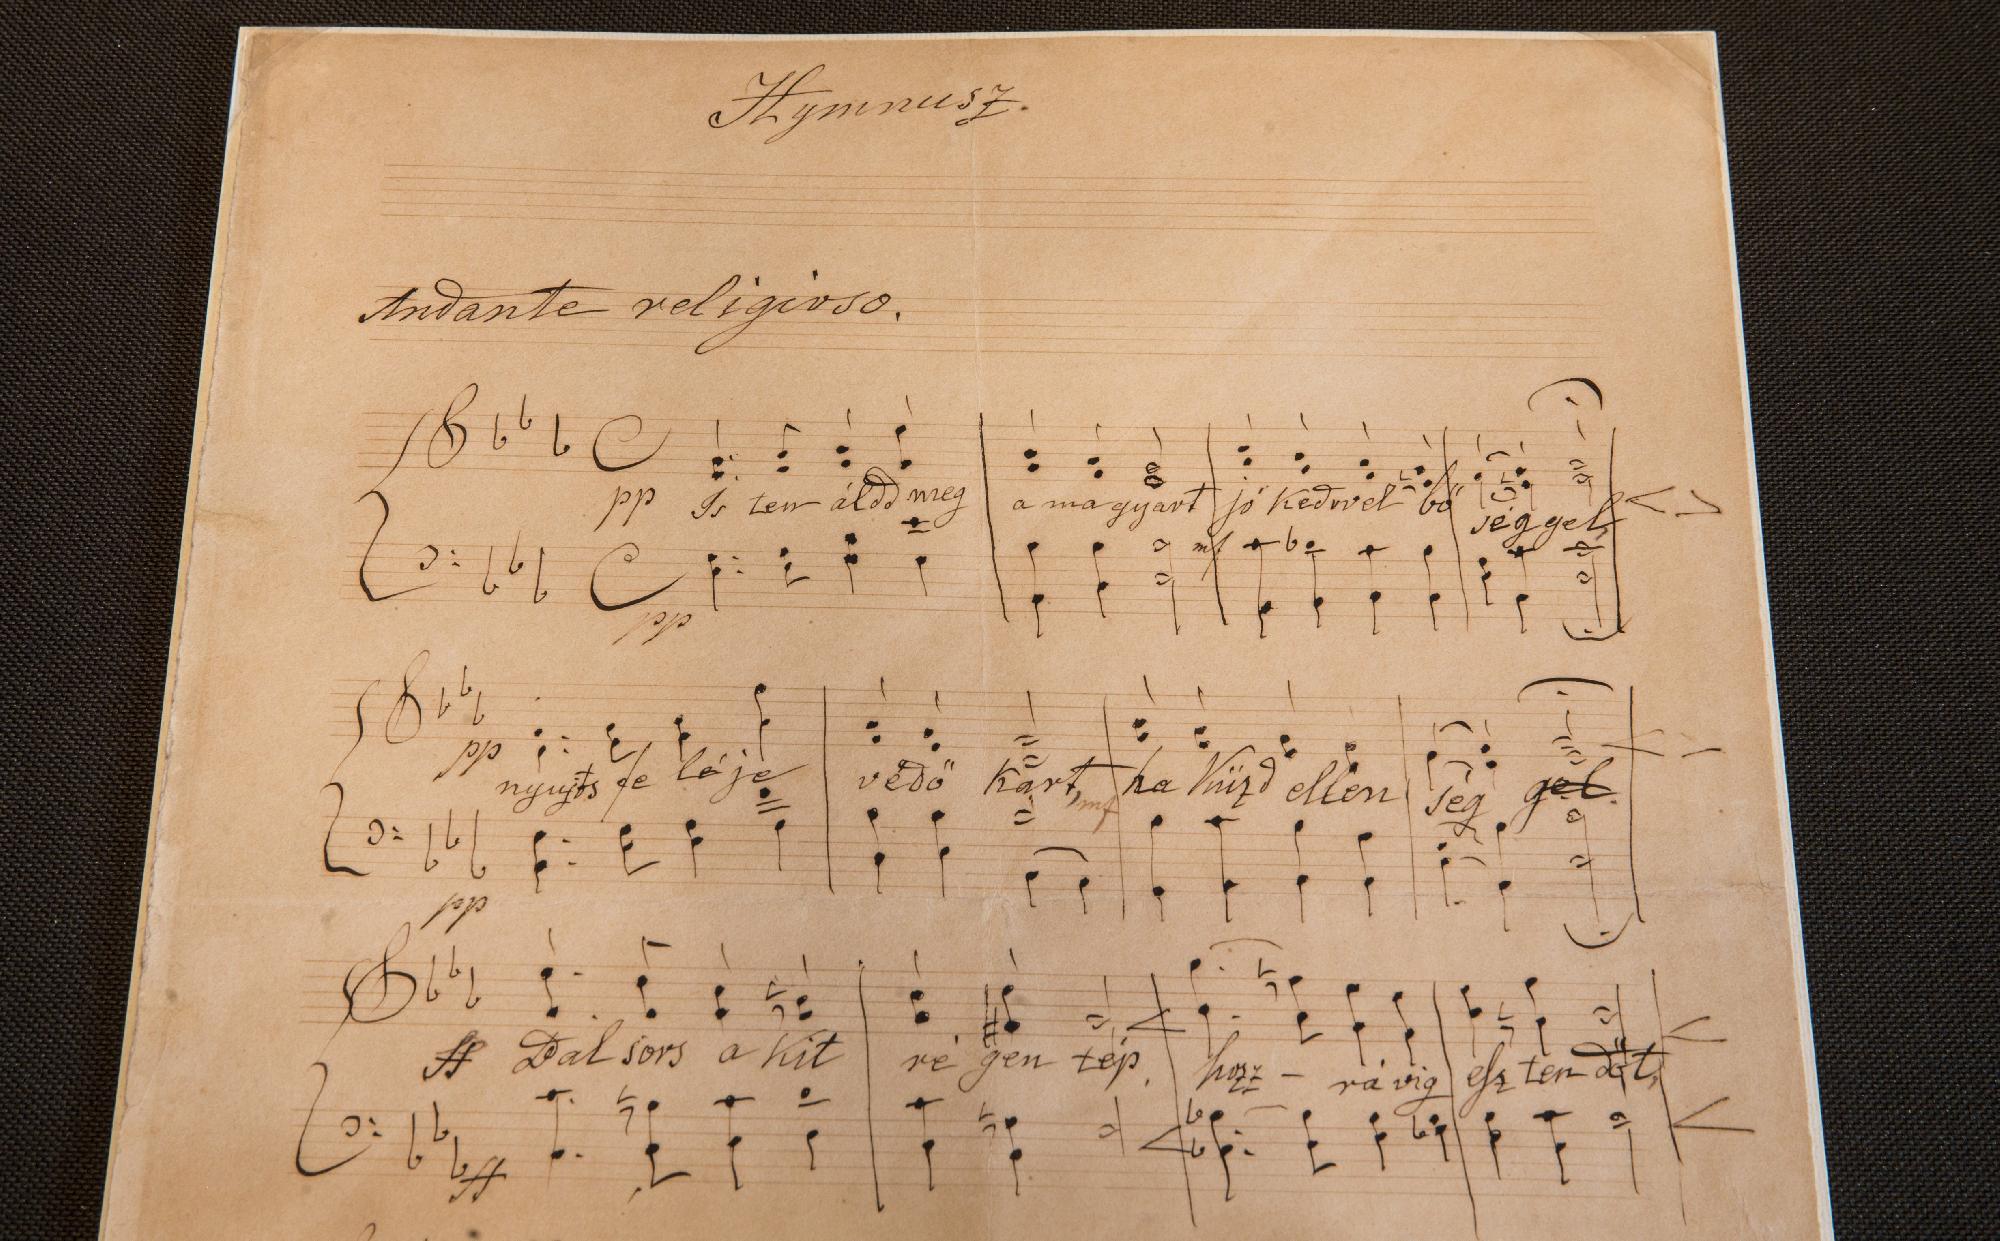 Hymnusz.
Andante religioso.
pp Is ten áldd meg a ma gyart jó kedvvel bő séggel
mf
pp
pp nyujts fe léje védő kart, ha küzd ellen ség gel.
mf
pp
ff Bal sors a kit ré gen tép, hozz - rá víg esz ten dőt,
ff